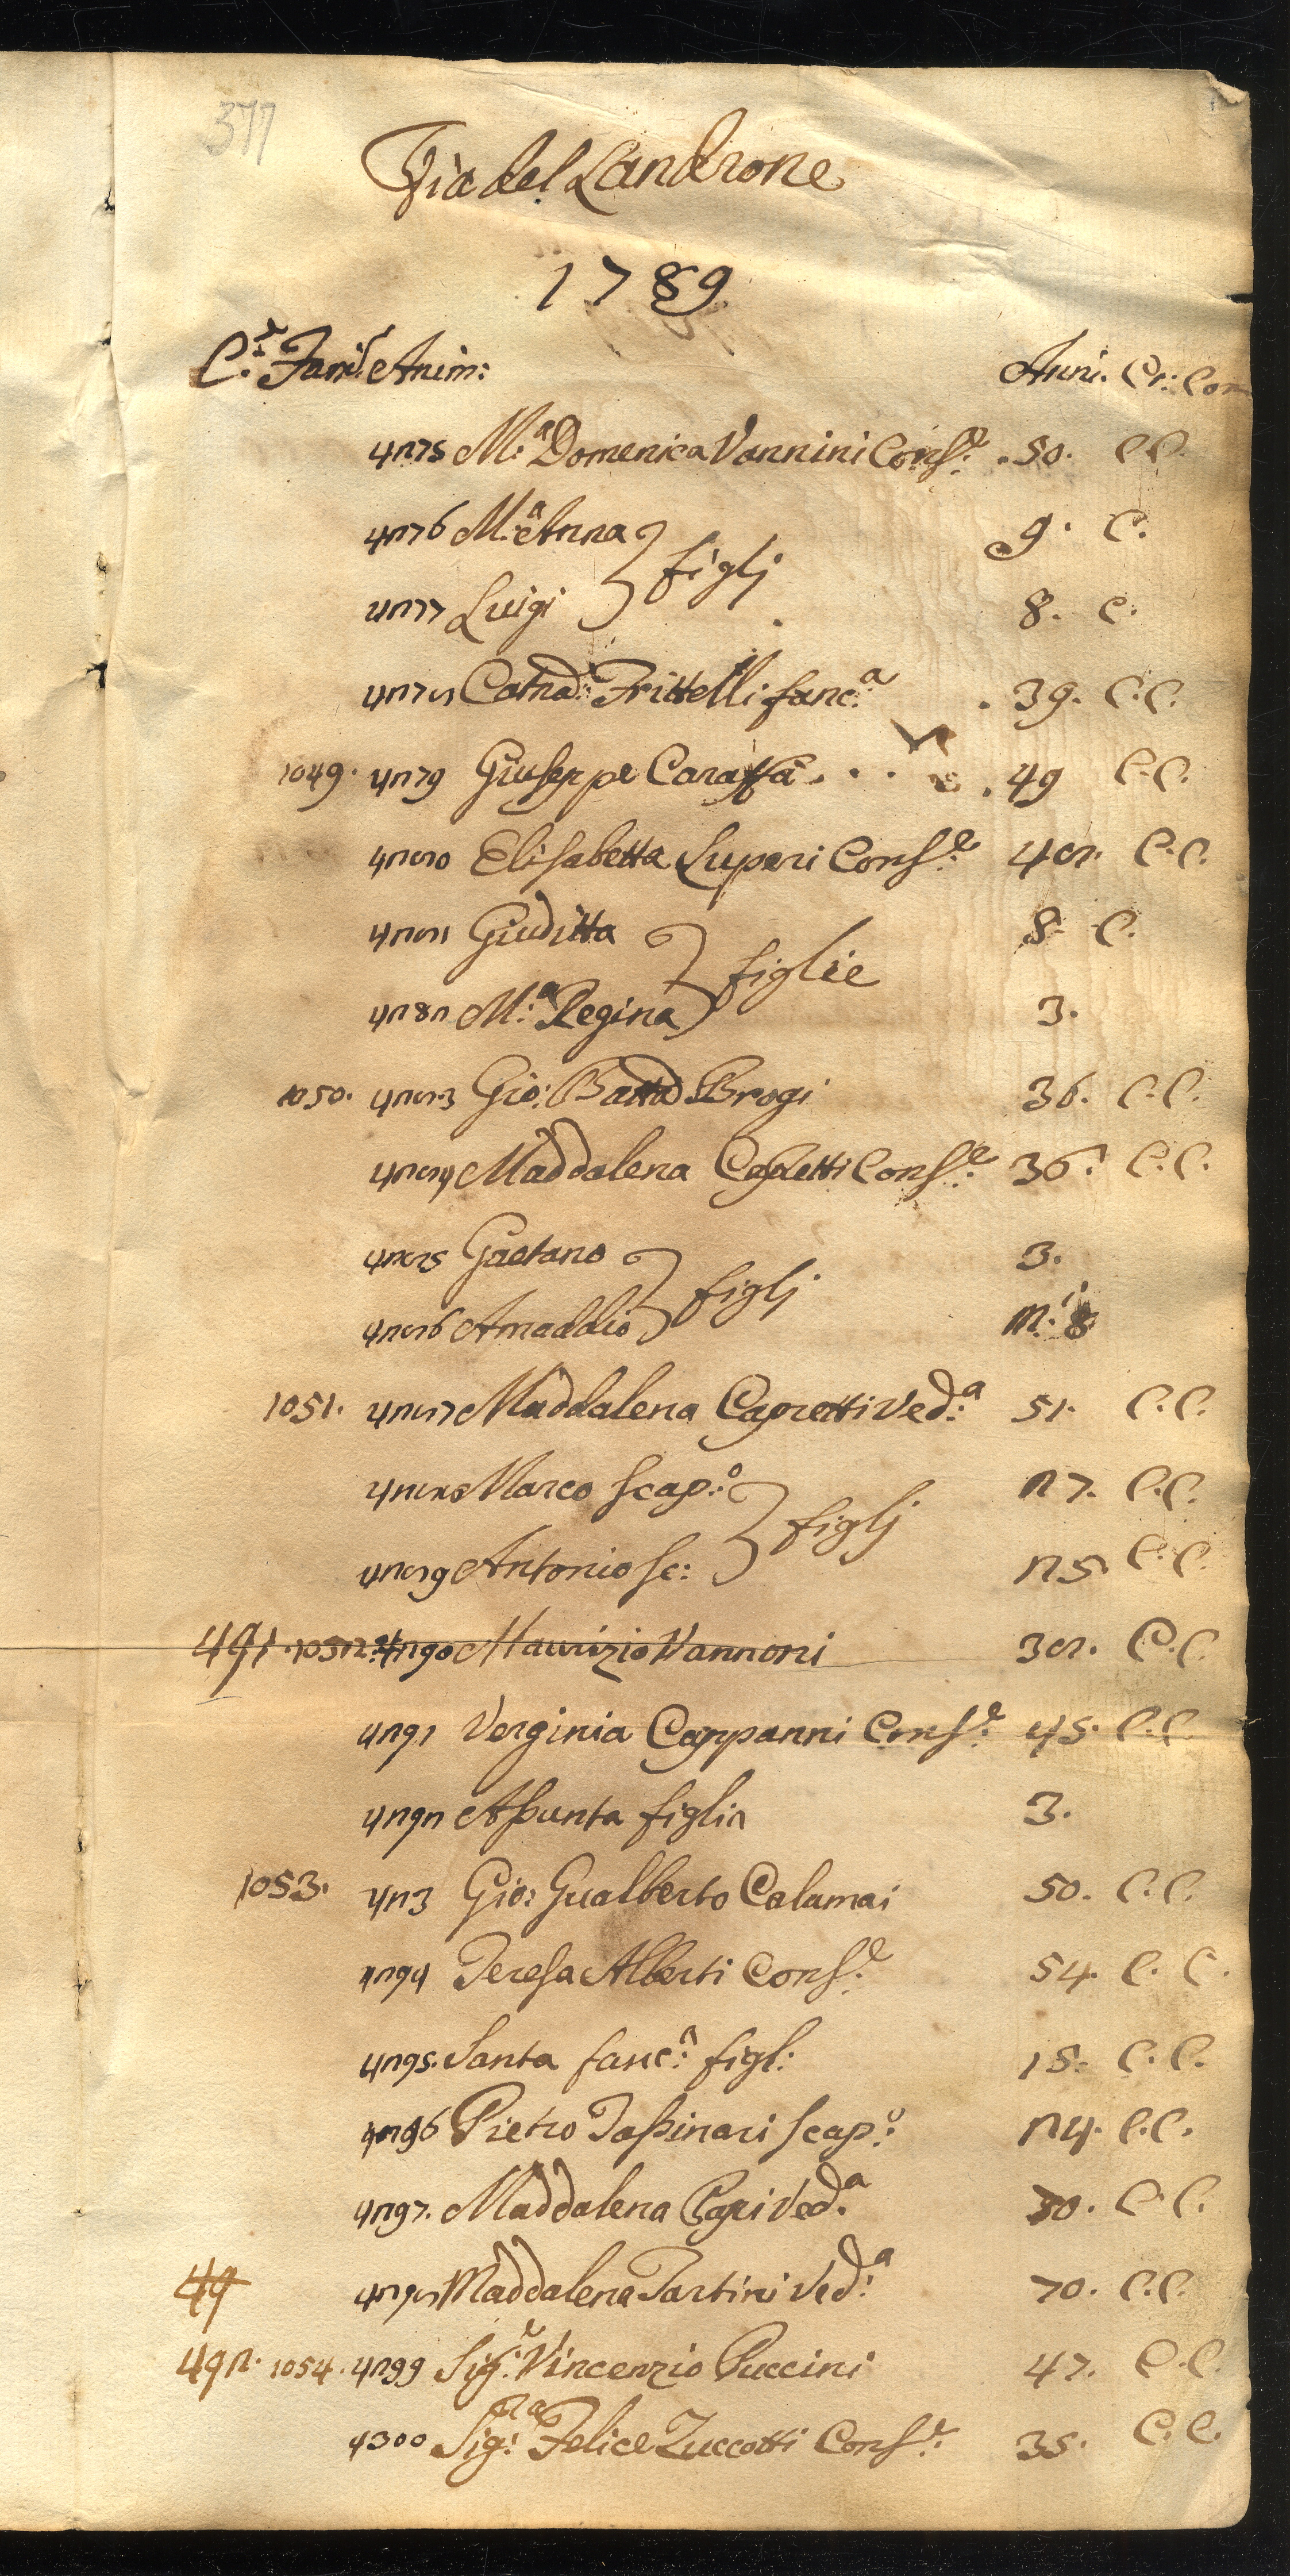 377
Via del Landrone
1789
C.e Fami: Anim: Anni. Cr: Com
4275 M.a Domenica Vannini Cons.e 50. C.C.
4276 M.a Anna 9. C.
figlj
4277 Luigi 8. C.
4278 Catna: Frittelli fanc.a 39. C.C.
1049. 4279 Giuseppe Caraffa . . . 49 C.C.
4280 Elisabetta Superi Cons.e 48. C.C.
4281 Giuditta 8. C.
figlie
4282 M.a Regina 3.
1050. 4283 Gio: Batta Brogi 36. C.C.
4284 Maddalena Cons.e 36. C.C.
4285 Gaetano 3.
figlj
4286 Amaddio m.i 8
1051. 4287 Maddalena Capretti Ved.a 51. C.C.
4288 Marco scap.o 27. C.C.
figlj
4289 Antonio sc: 25 C.C.
491. 1052. 4290 Maurizio Vannoni 38. C.C.
4291 Verginia Cappanni Cons.e 45. C.C.
4292 Assunta figlia 3.
1053. 423 Gio: Gualberto Calamai 50. C.C.
4294 Teresa Alberti Cons.e 54. C. C.
4295. Santa fanc.a figl: 18. C.C.
4296 Pietro Tassinari scap.o 24. C.C.
4297. Maddalena Ved.a 70. C.C.
49 4298 Maddalena Tartini Ved.a 70. C.C.
492. 1054. 4299 Sig.e Vincenzio Puccini 47. C.C.
4300 Sig.ra Felice Zuccotti Cons.e 35. C.C.